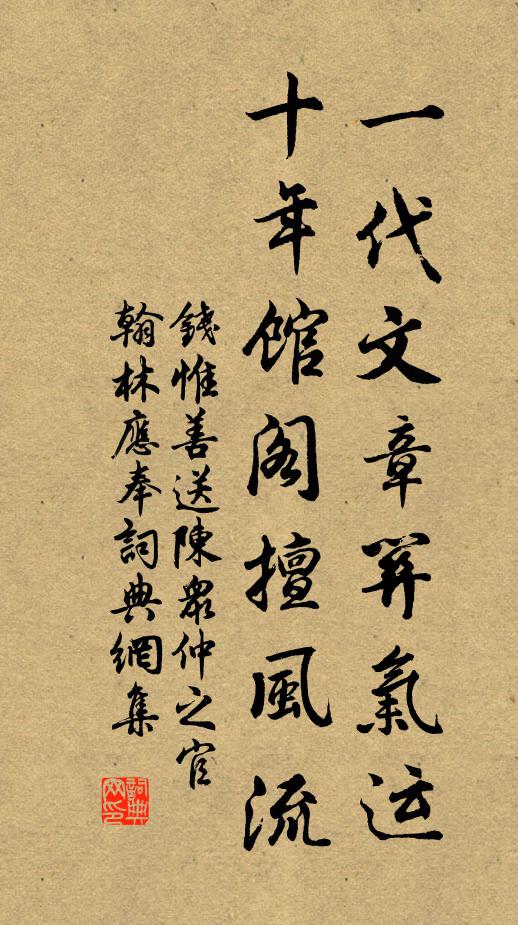 一代文章关氣运
十年館阁擅風流
錢惟善送陳衆仲之官
翰林應奉詞典網集
詞典
网印